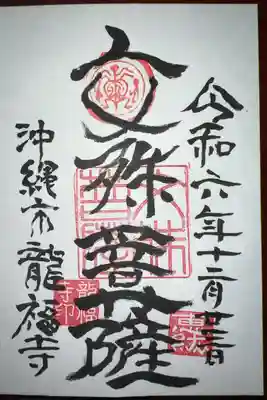 令和六年十二月
文殊菩薩
沖縄市龍福寺
龍福寺印